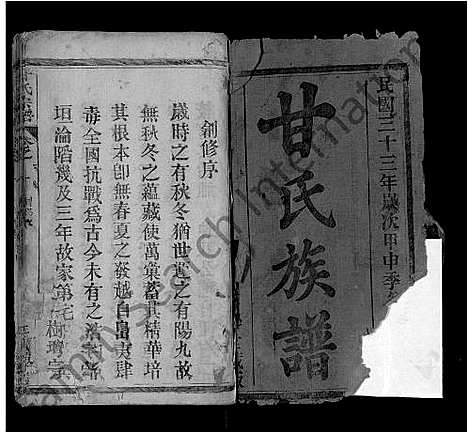 民國三十三年歲次甲申季
甘氏族譜
創修序
歲時之有秋冬猶世運之有陽九故
無秋冬之蘊藏使萬彙蓄其精華培
其根本即無春夏之發越自島夷肆
毒全國抗戰爲古今未有之浩
垣淪陷幾及三年故家第宅